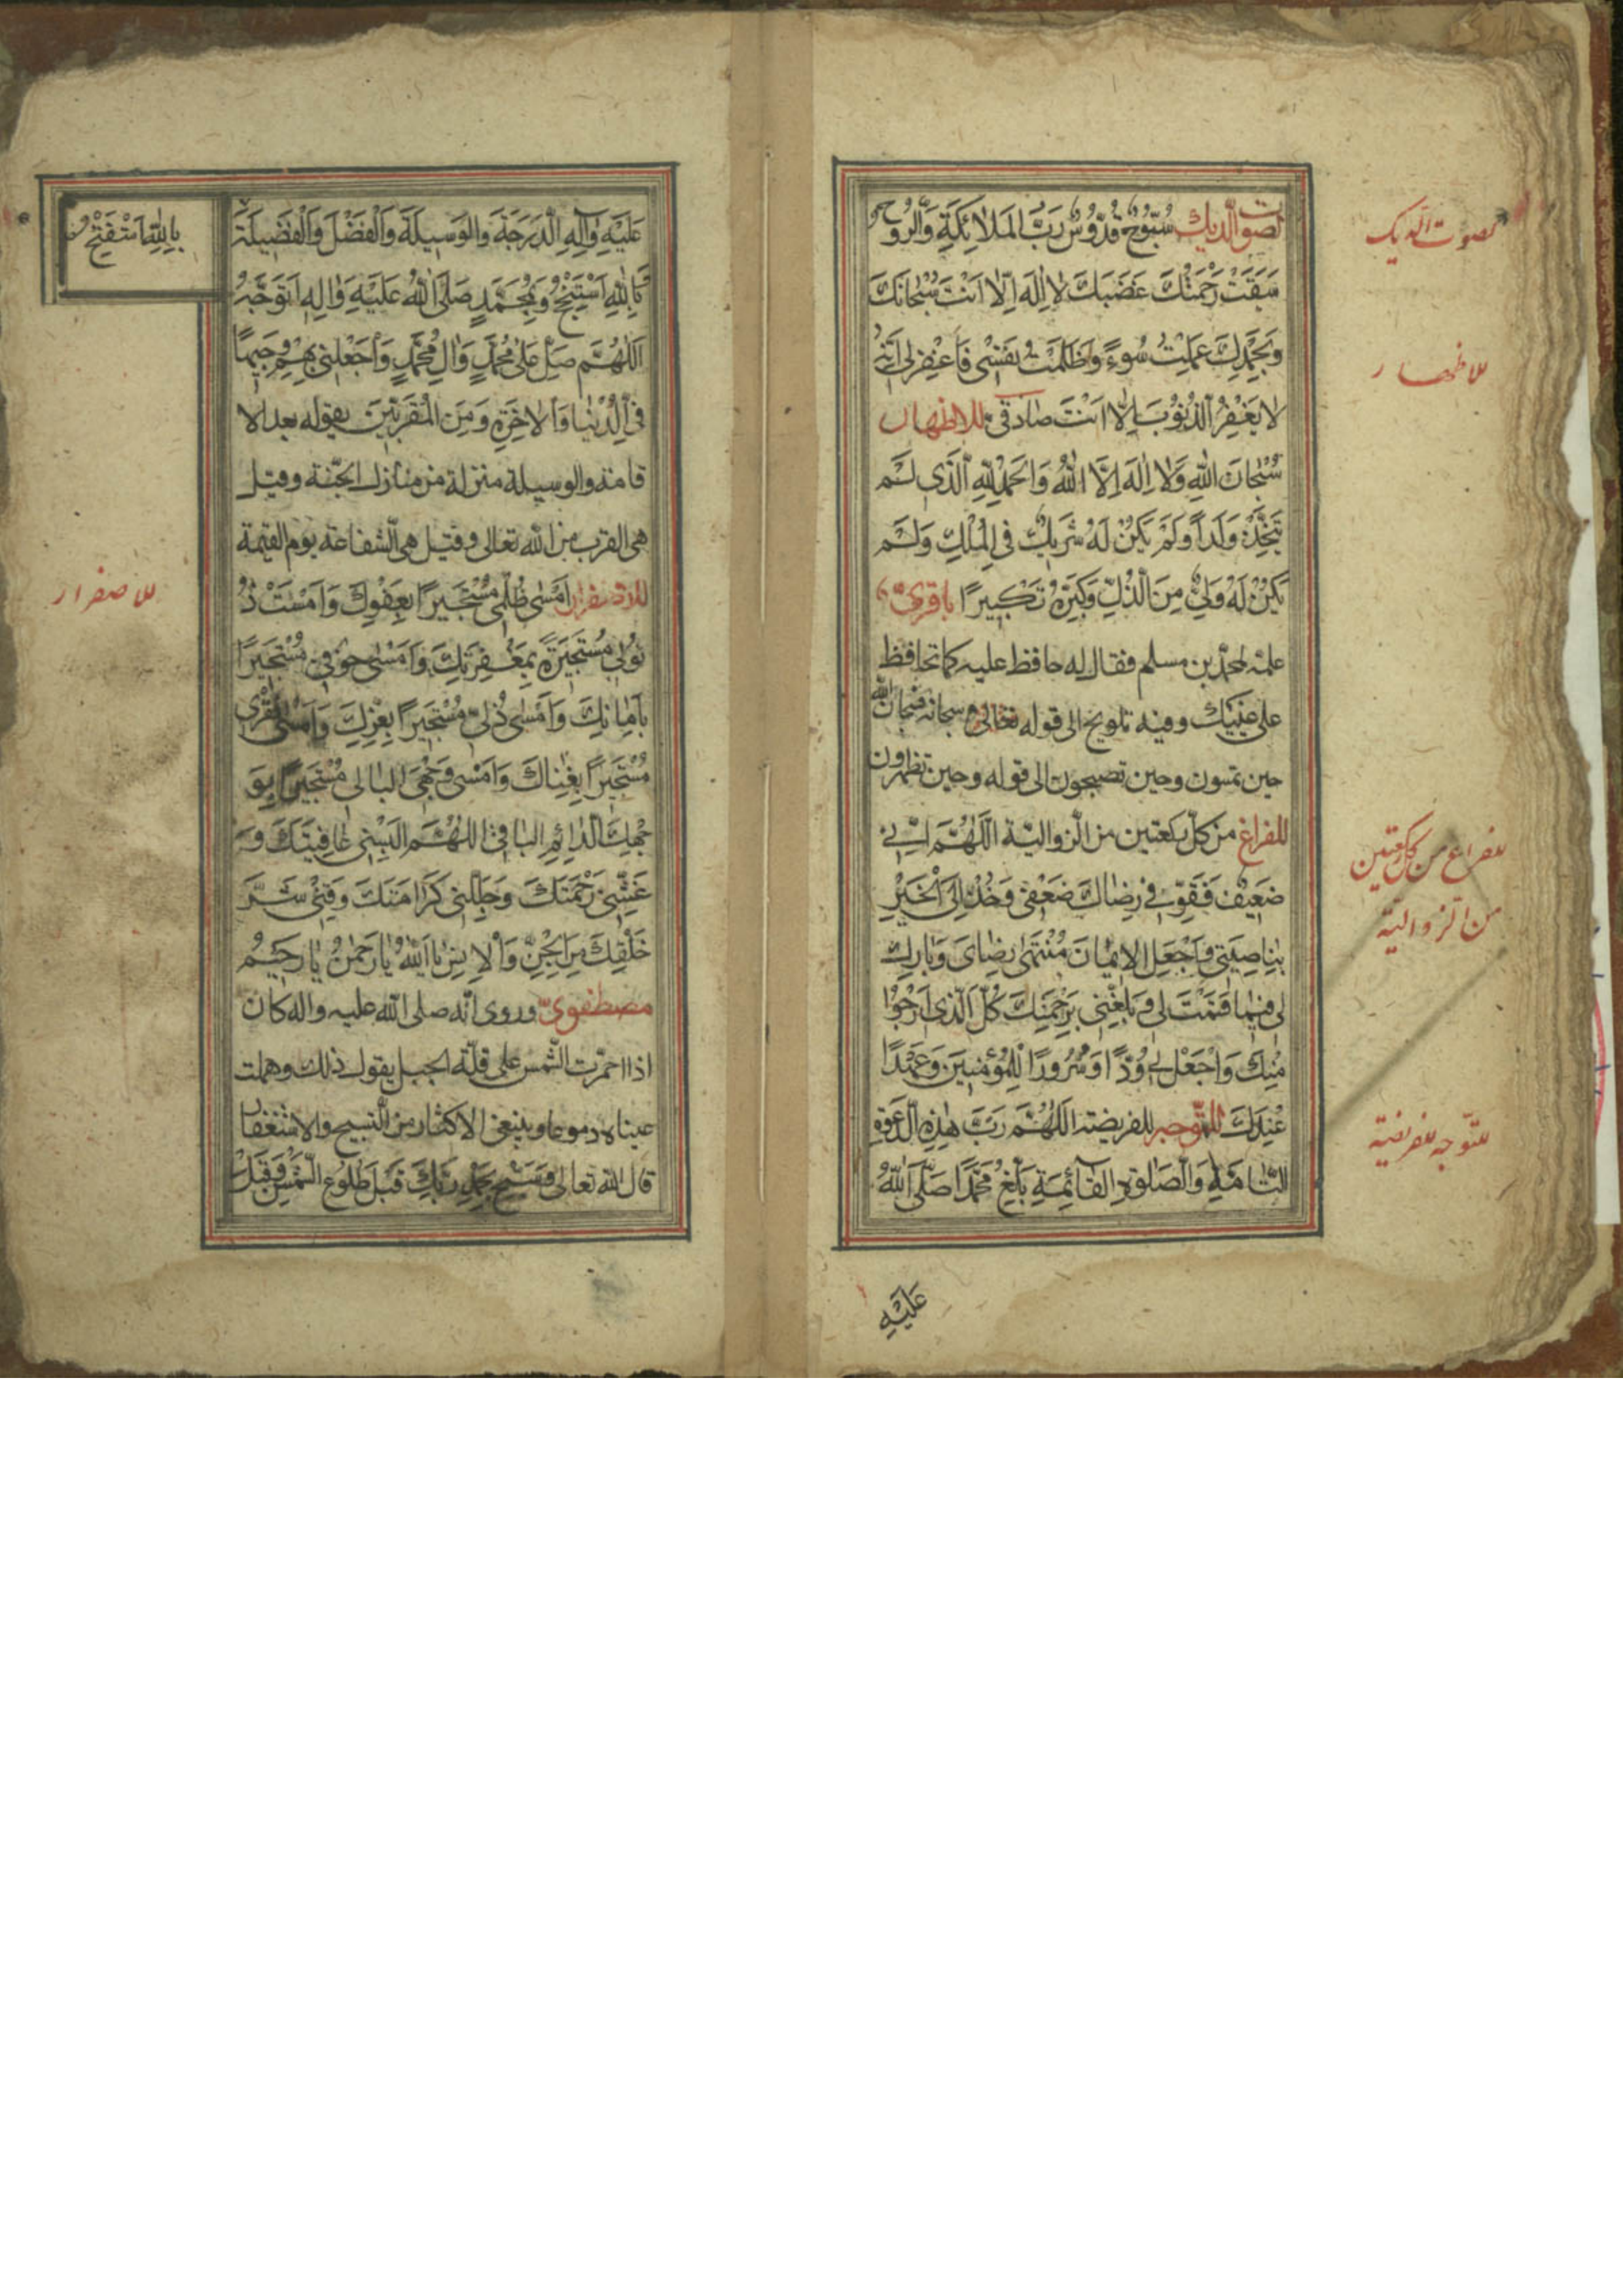 لصوت الديك سُبُّوحٌ قُدُّوسٌ رَبُّ المَلائِكَةِ وَالرُّوحِ
سَبَقَتْ رَحْمَتُكَ غَضَبَكَ لا اِلٰهَ اِلّا اَنْتَ سُبْحانَكَ
وَبِحَمْدِكَ عَمِلْتُ سُوءً وَظَلَمْتُ نَفْسْی فَاغْفِرْلی اِنَّهُ
لا يَغْفِرُ الذُنُوْبَ اِلّا اَنْتَ صادقی للاظهار
سُبْحانَ اللهِ وَلا اِلٰهَ اِلَّا اللهُ وَالحَمْدُ لِلّهِ الَّذی لَمْ
يَتَّخِذْ وَلَداً وَلَمْ يَكُنْ لَهُ شَرِيكٌ فی المُلْكِ وَلَمْ
يَكُنْ لَهُ وَلِیٌّ مِنَ الذُّلِّ وَكَبِّرْهُ تَكْبيرًا باقری
علمه لمحمد بن مسلم فقال له حافظ عليه كما تحافظ
على عينيك وفيه تلويح الى قوله تعالى سبحانه فسبحان الله
حين تمسون وحين تصبحون الى قوله وحين تظهرون
للفراغ من كلّ ركعتين من الزوالية اَللّهُمَّ اِنّی
ضَعِيْفٌ فَقَوِّ فی رِضاكَ ضَعْفی وَخُذْ اِلَی الْخَيْرِ
بِناصِيَتی وَاجْعَلِ الايْمانَ مُنْتَهی رِضایَ وَبارِكْ
لی فيما قَسَمْتَ لی وَبَلِّغْنی بِرَحْمَتِكَ كُلَّ الَّذی اَرْجُوْا
مِنْكَ وَاجْعَلْ لی وُدًّا وَسُرُورًا لِلْمُؤْمِنينَ وَعَهْدًا
عِنْدَكَ للتوجه للفريضة اَللّهُمَّ رَبَّ هٰذِهِ الدَّعْوَةِ
التّامَّةِ وَالصَّلوةِ القائِمَةِ بَلِّغْ مُحَمَّدًا صَلَّی اللهُ
عَلَيْهِ
لصوت الديك
للاظهار
للفراغ من كل ركعتين
من الزوالية
للتوجه للفريضة
عَلَيْهِ وَآلِهِ الدَّرَجَةَ وَالوَسيلَةَ وَالْفَضْلَ وَالْفَضيلَةَ
بِاللهِ اَسْتَفْتِحُ
وَبِاللهِ اَسْتَنْجِحُ وَبِمُحَمَّدٍ صَلَّی اللهُ عَلَيْهِ وَالِهِ اَتَوَجَّهُ
اَللّهُمَّ صَلِّ عَلی مُحَمَّدٍ وَالِ مُحَمَّدٍ وَاجْعَلْنی بِهِمْ وَجيهًا
فی الدُّنْيا وَالاخِرَةِ وَمِنَ المُقَرَّبينَ يقوله بعد الا
قامة والوسيلة منزلة من منازل الجنّة وقيل
هی القرب من الله تعالى وقيل هی الشفاعة يوم القيمة
للاصفرار اَمْسی ظُلْمی مُسْتَجيرًا بِعَفْوِكَ وَاَمْسَتْ ذُ
نُوبی مُسْتَجيرَةً بِمَغْفِرَتِكَ وَاَمْسی خَوْفی مُسْتَجيرًا
بِاَمانِكَ وَاَمْسی ذُلّی مُسْتَجيرًا بِعِزِّكَ وَاَمْسی فَقْری
مُسْتَجيرًا بِغِناكَ وَاَمْسی وَجْهِیَ البالی مُسْتَجيرًا بِوَ
جْهِكَ الدّائِمِ الباقی اللّهُمَّ اَلْبِسْنی عافِيَتَكَ وَ
غَشِّنی رَحْمَتَكَ وَجَلِّلْنی كَرامَتَكَ وَقِنی شَرَّ
خَلْقِكَ مِنَ الجِنِّ وَالاِنْسِ يا اَللهُ يا رَحْمٰنُ يا رَحيمُ
مصطفوی وروی انّه صلی الله عليه واله كان
اذا احمرّت الشمس على قلّة الجبل يقول ذلك وهملت
عيناه دموعا وينبغی الاكثار من التسبيح والاستغفار
قال الله تعالى فَسَبِّحْ بِحَمْدِ رَبِّكَ قَبْلَ طُلُوعِ الشَّمْسِ وَقَبْلَ
للاصفرار